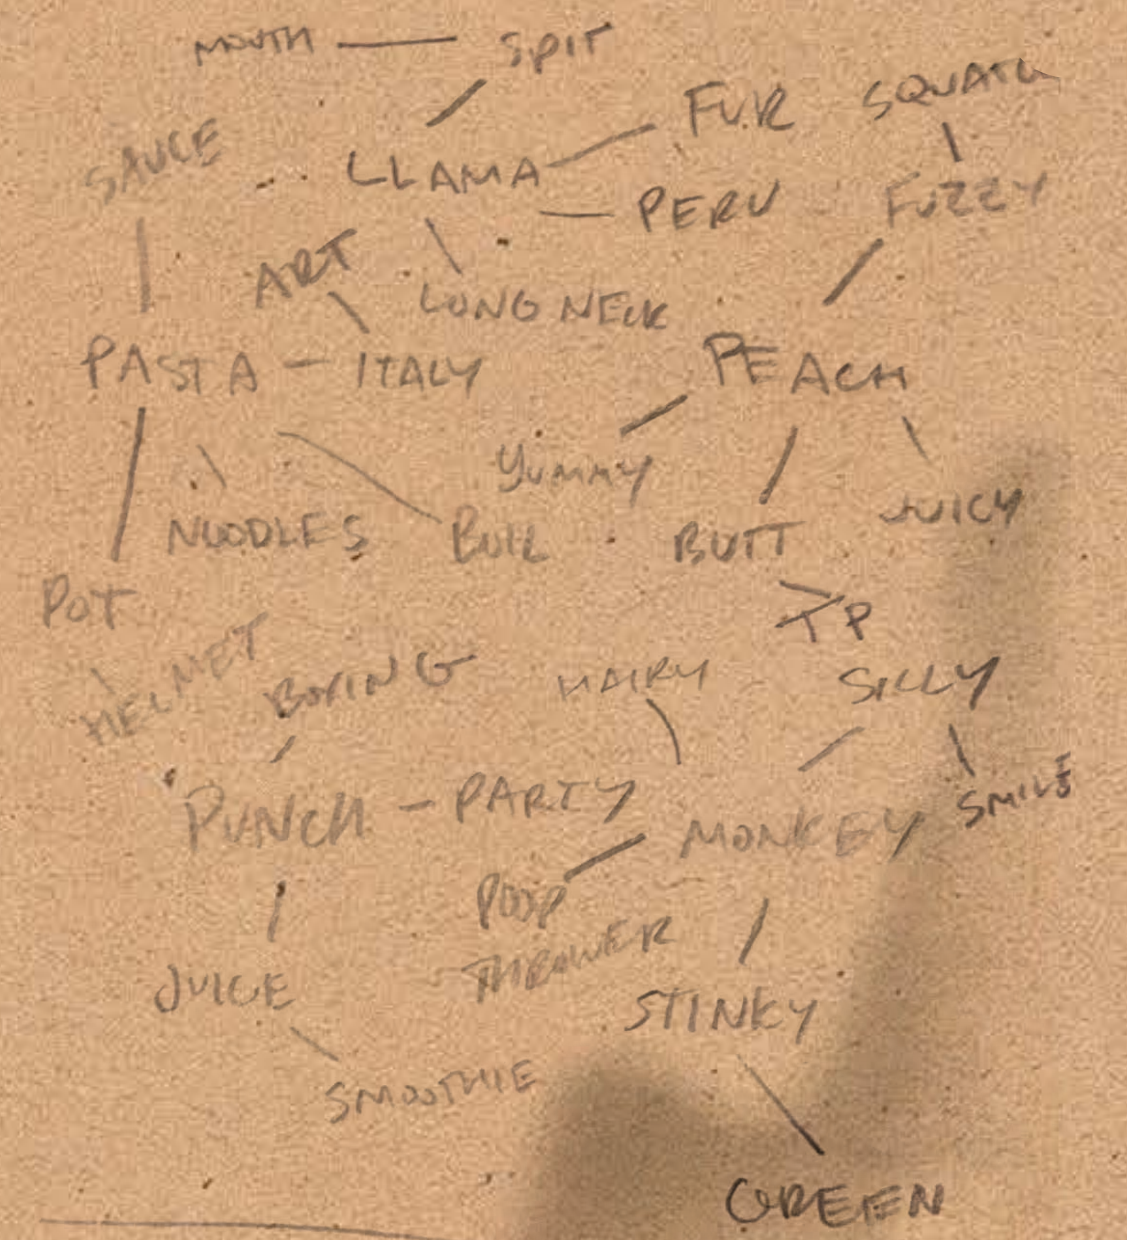 MOUTH SPIT
FUR SQUATCH
SAUCE LLAMA
PERU FUZZY
ART
LONG NECK
PASTA ITALY PEACH
YUMMY
NOODLES BOIL BUTT JUICY
POT TP
HELMET BOXING HAIRY SILLY
PUNCH PARTY MONKEY SMILE
POOP
THROWER
JUICE STINKY
SMOOTHIE
GREEN